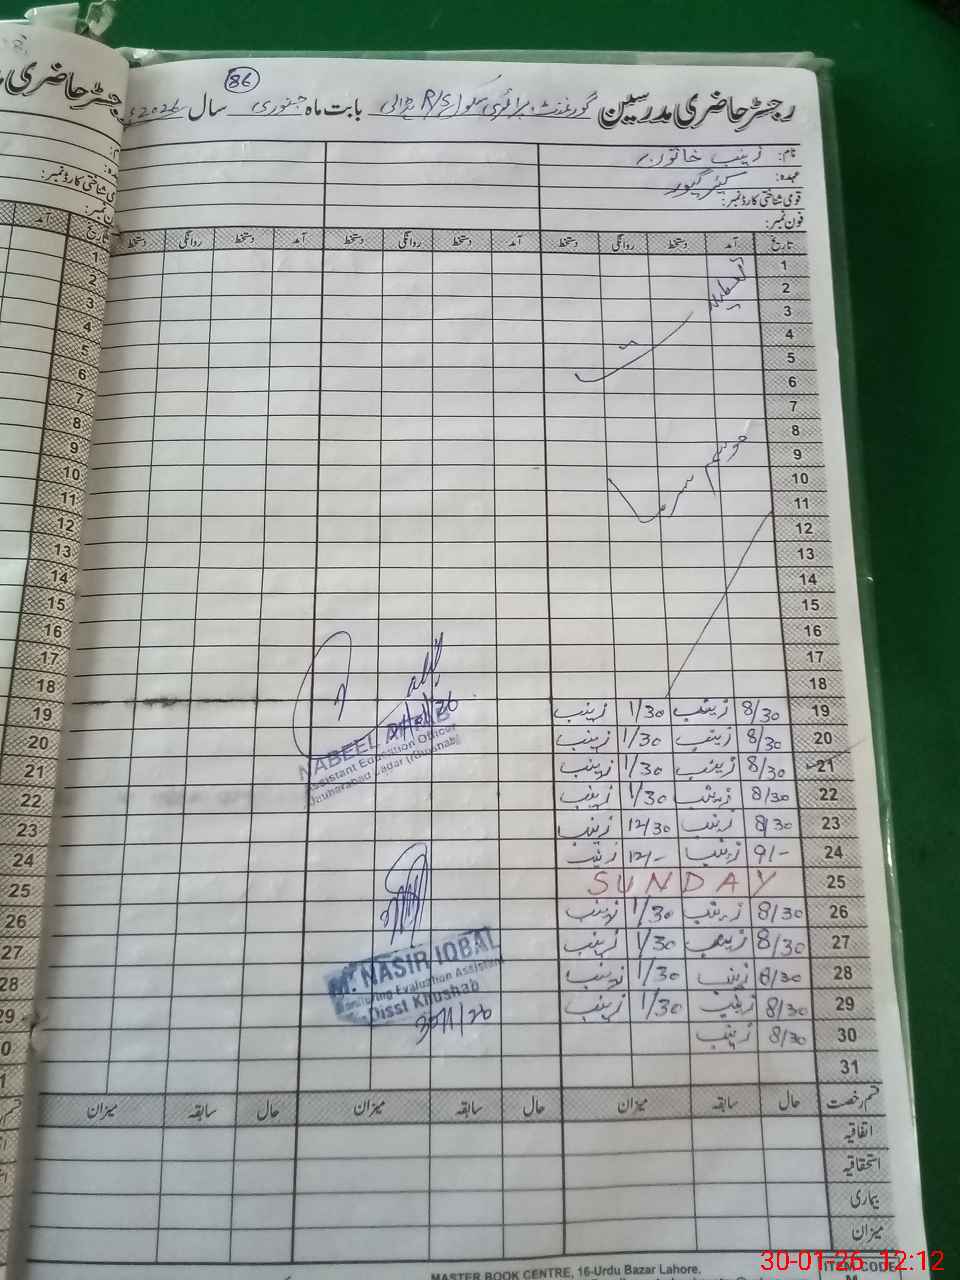 86
رجسٹر حاضری مدرسین گورنمنٹ پرائمری سکول R/S بابت ماہ جنوری سال 2026ء
نام: زینب خاتون
عہدہ: کیئر گیور
قومی شناختی کارڈ نمبر:
فون نمبر:
تاریخ آمد دستخط روانگی دستخط آمد دستخط روانگی دستخط آمد دستخط روانگی دستخط
1
2
3
4
5
6
7
8
9
10
11
12
13
14
15
16
17
18
تعطیلات
موسم سرما
19 8/30 زینب 1/30 زینب
20 8/30 زینب 1/30 زینب
21 8/30 زینب 1/30 زینب
22 8/30 زینب 1/30 زینب
23 8/30 زینب 12/30 زینب
24 9/- زینب 12/- زینب
25 SUNDAY
26 8/30 زینب 1/30 زینب
27 8/30 زینب 1/30 زینب
28 8/30 زینب 1/30 زینب
29 8/30 زینب 1/30 زینب
30 8/30 زینب
31
NABEEL AFTAB
Assistant Education Officer
Jauharabad Sadar (Khushab)
M. NASIR IQBAL
Monitoring Evaluation Assistant
Disst Khushab
30/1/26
قسم رخصت حال سابقہ میزان حال سابقہ میزان حال سابقہ میزان
اتفاقیہ
استحقاقیہ
بیماری
میزان
ITEM CODE
MASTER BOOK CENTRE, 16-Urdu Bazar Lahore.
30-01-26 12:12